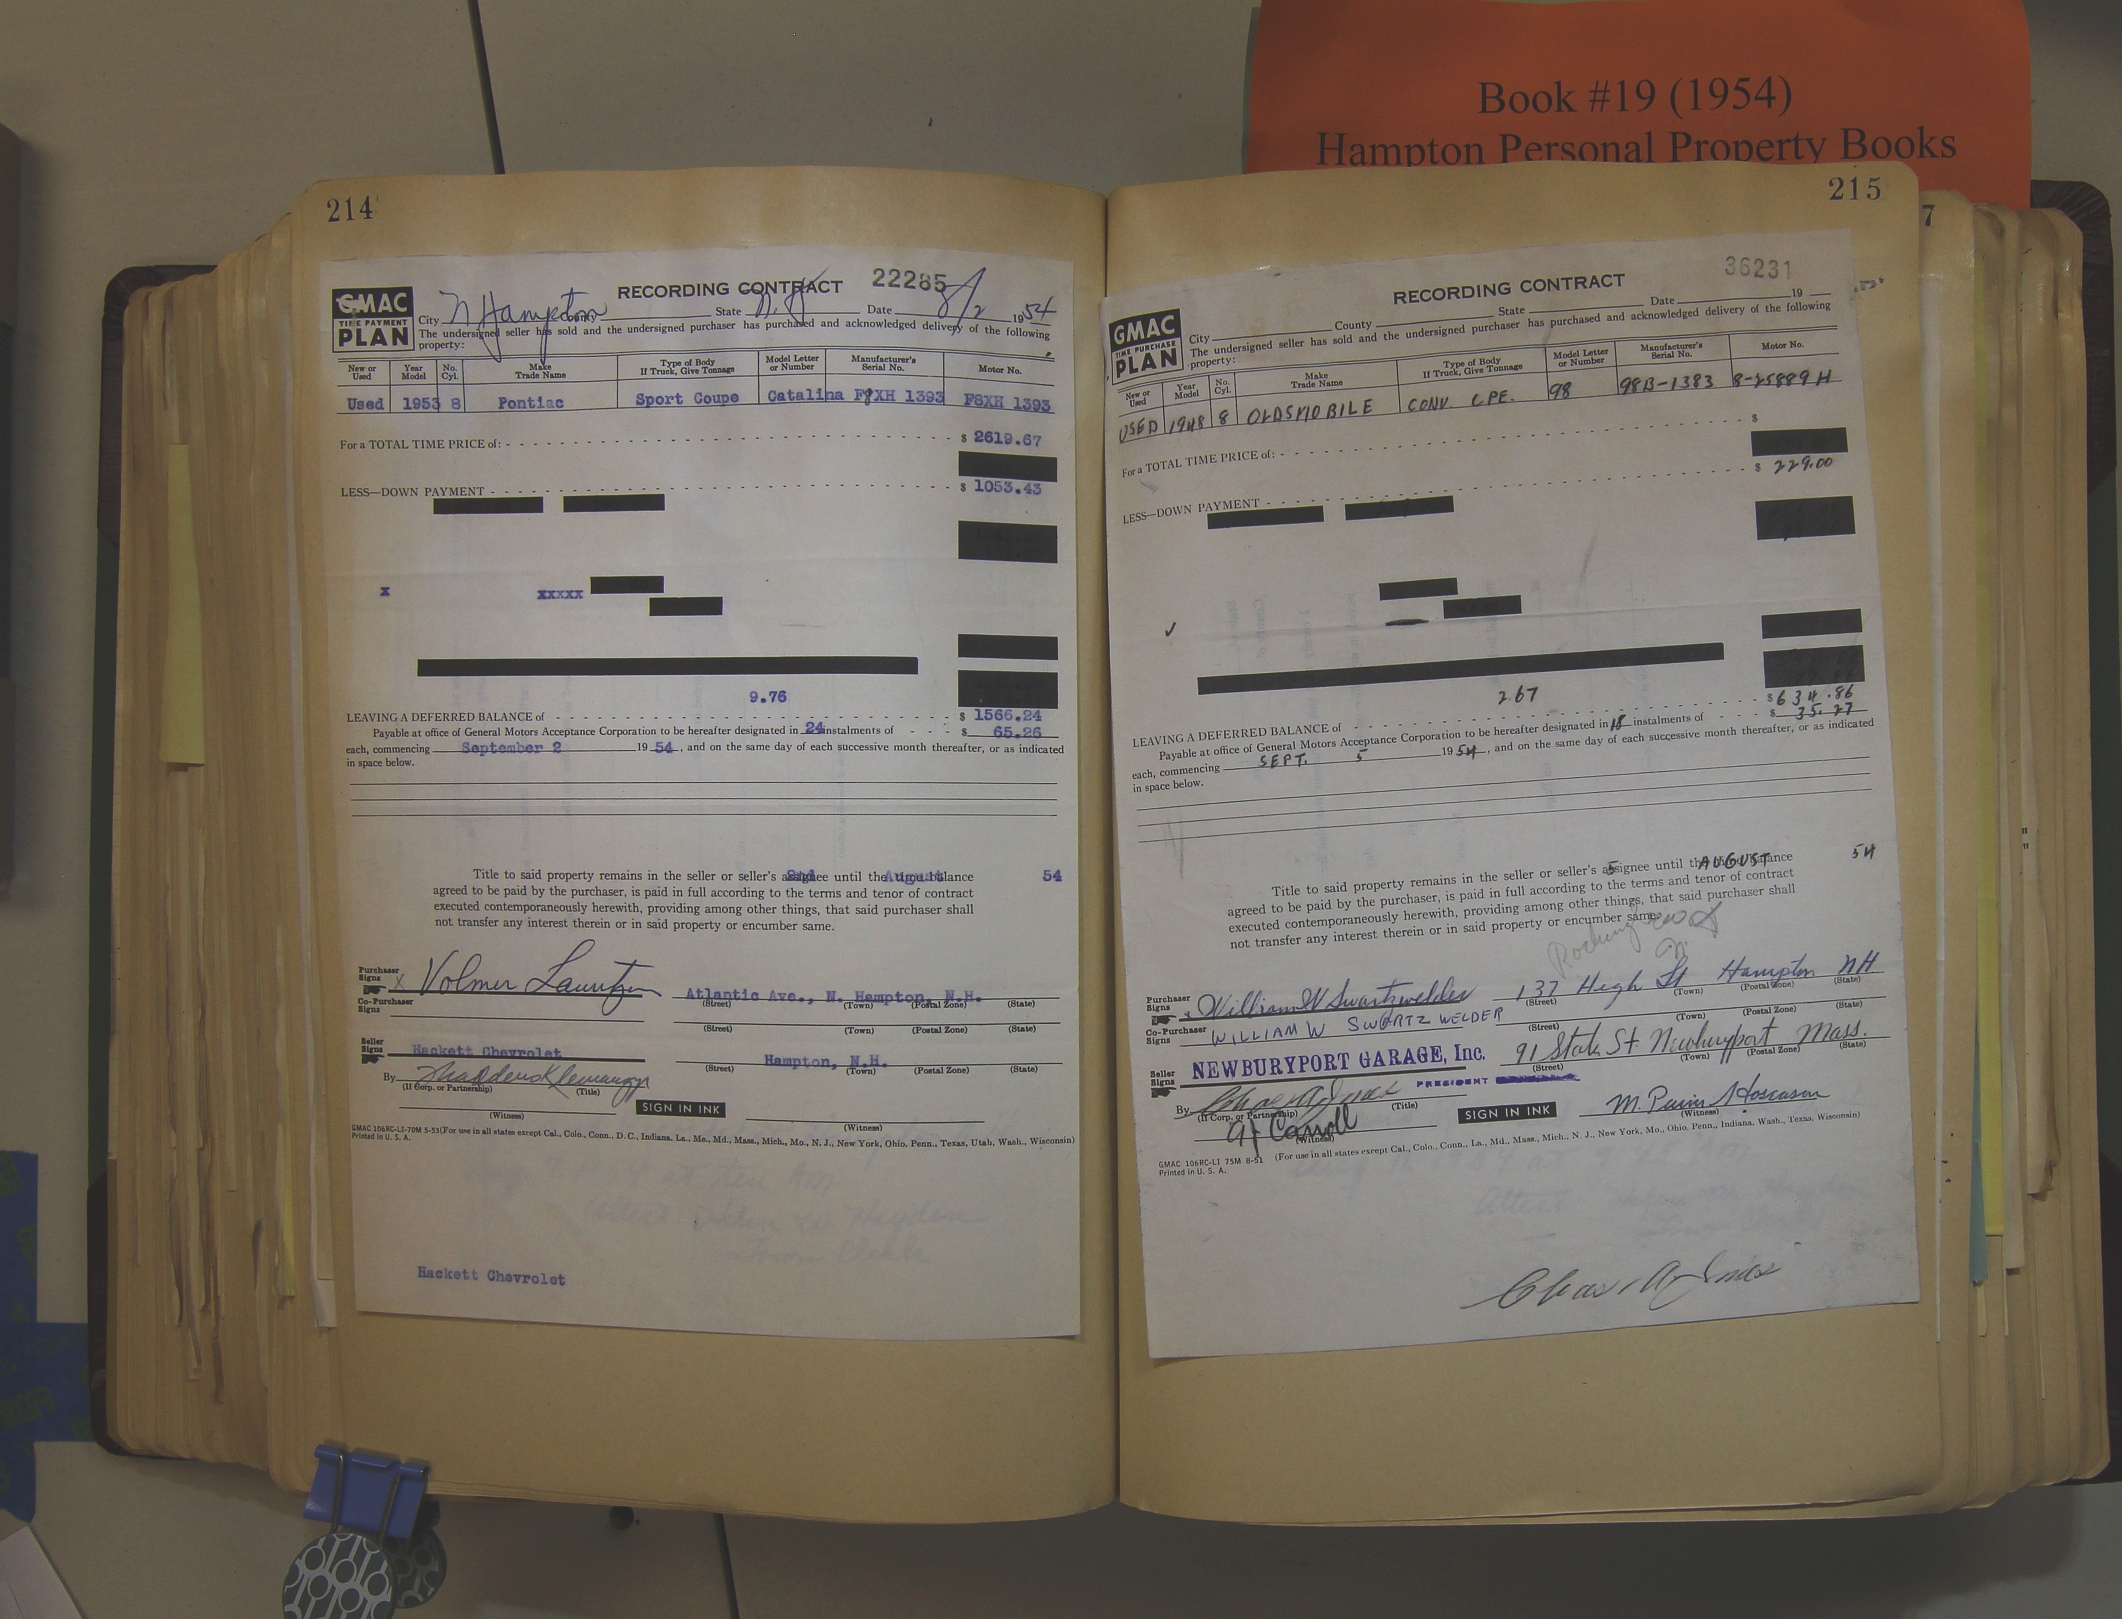 Book #19 (1954)
Hampton Personal Property Books
214
22285
GMAC
TIME PAYMENT
PLAN
RECORDING CONTRACT
City N Hampton County State N. H Date 8/2 1954
The undersigned seller has sold and the undersigned purchaser has purchased and acknowledged delivery of the following
property:
New or Used Year Model No. Cyl. Make Trade Name Type of Body If Truck, Give Tonnage Model Letter or Number Manufacturer's Serial No. Motor No.
Used 1953 8 Pontiac Sport Coupe Catalina P8XH 1393 P8XH 1393
For a TOTAL TIME PRICE of: $ 2619.67
LESS—DOWN PAYMENT $ 1053.43
x xxxxx
9.76
LEAVING A DEFERRED BALANCE of $ 1566.24
Payable at office of General Motors Acceptance Corporation to be hereafter designated in 24 instalments of $ 65.26
each, commencing September 2 1954, and on the same day of each successive month thereafter, or as indicated
in space below.
2nd August 54
Title to said property remains in the seller or seller's assignee until the time balance
agreed to be paid by the purchaser, is paid in full according to the terms and tenor of contract
executed contemporaneously herewith, providing among other things, that said purchaser shall
not transfer any interest therein or in said property or encumber same.
Purchaser Signs x Volmer Lauritzen Atlantic Ave., N. Hampton, N.H.
(Street) (Town) (Postal Zone) (State)
Co-Purchaser Signs
(Street) (Town) (Postal Zone) (State)
Seller Signs Hackett Chevrolet Hampton, N.H.
(Street) (Town) (Postal Zone) (State)
By
(If Corp. or Partnership) (Title)
SIGN IN INK
(Witness) (Witness)
GMAC 106RC-LI-70M 5-53 (For use in all states except Cal., Colo., Conn., D. C., Indiana, La., Me., Md., Mass., Mich., Mo., N. J., New York, Ohio, Penn., Texas, Utah, Wash., Wisconsin)
Printed in U. S. A.
Hackett Chevrolet
215
7
36231
GMAC
TIME PURCHASE
PLAN
RECORDING CONTRACT
City County State Date 19
The undersigned seller has sold and the undersigned purchaser has purchased and acknowledged delivery of the following
property:
New or Used Year Model No. Cyl. Make Trade Name Type of Body If Truck, Give Tonnage Model Letter or Number Manufacturer's Serial No. Motor No.
USED 1948 8 OLDSMOBILE CONV. CPE. 98 98B-1383 8-25889 H
For a TOTAL TIME PRICE of: $
LESS—DOWN PAYMENT $ 229.00
2.67
LEAVING A DEFERRED BALANCE of $ 634.86
Payable at office of General Motors Acceptance Corporation to be hereafter designated in 18 instalments of $ 35.27
each, commencing SEPT. 5 1954, and on the same day of each successive month thereafter, or as indicated
in space below.
5 AUGUST 54
Title to said property remains in the seller or seller's assignee until the time balance
agreed to be paid by the purchaser, is paid in full according to the terms and tenor of contract
executed contemporaneously herewith, providing among other things, that said purchaser shall
not transfer any interest therein or in said property or encumber same.
Purchaser Signs x William W Swartzwelder 137 High St Hampton NH
(Street) (Town) (Postal Zone) (State)
Co-Purchaser Signs WILLIAM W SWARTZ WELDER
(Street) (Town) (Postal Zone) (State)
Seller Signs NEWBURYPORT GARAGE, Inc. 91 State St. Newburyport Mass.
(Street) (Town) (Postal Zone) (State)
By PRESIDENT
(If Corp. or Partnership) (Title)
SIGN IN INK
Carroll
(Witness) (Witness)
GMAC 106RC-LI 75M 8-51 (For use in all states except Cal., Colo., Conn., La., Md., Mass., Mich., N. J., New York, Mo., Ohio, Penn., Indiana, Wash., Texas, Wisconsin)
Printed in U. S. A.